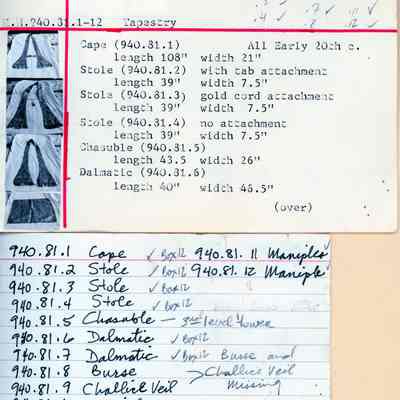 .4 ✓ .7 ✓ .11 ✓
.8 .12 ✓
M.H.940.81.1-12 Tapestry
Cape (940.81.1) All Early 20th c.
length 108" width 21"
Stole (940.81.2) with tab attachment
length 39" width 7.5"
Stole (940.81.3) gold cord attachment
length 39" width 7.5"
Stole (940.81.4) no attachment
length 39" width 7.5"
Chasuble (940.81.5)
length 43.5 width 26"
Dalmatic (940.81.6)
length 40" width 46.5"
(over)
940.81.1 Cape ✓ Box12 940.81.11 Maniples ✓
940.81.2 Stole ✓ Box12 940.81.12 Maniple
940.81.3 Stole ✓ Box12
940.81.4 Stole ✓ Box12
940.81.5 Chasuble — 3rd level lower
940.81.6 Dalmatic ✓ Box12
940.81.7 Dalmatic ✓ Box12 Burse and
940.81.8 Burse > Challice Veil
940.81.9 Challice Veil Missing